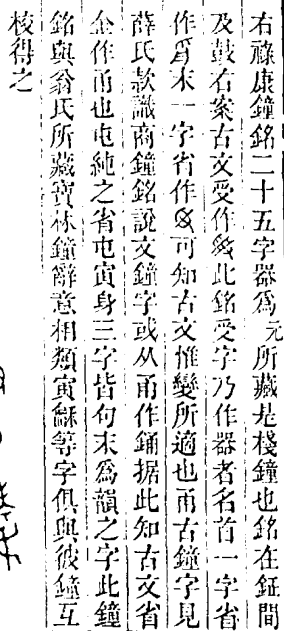 右祿康鐘銘二十五字器爲元所藏是棧鐘也銘在鉦間
及鼓右案古文受作𤔌此銘受字乃作器者名首一字省
作𤔔末一字省作可知古文惟變所適也甬古鐘字見
薛氏款識商鐘銘說文鐘字或从甬作銿据此知古文省
金作甬也屯純之省屯寅身三字皆句末爲韻之字此鐘
銘與翁氏所藏寶林鐘辭意相類寅龢等字俱與彼鐘互
校得之